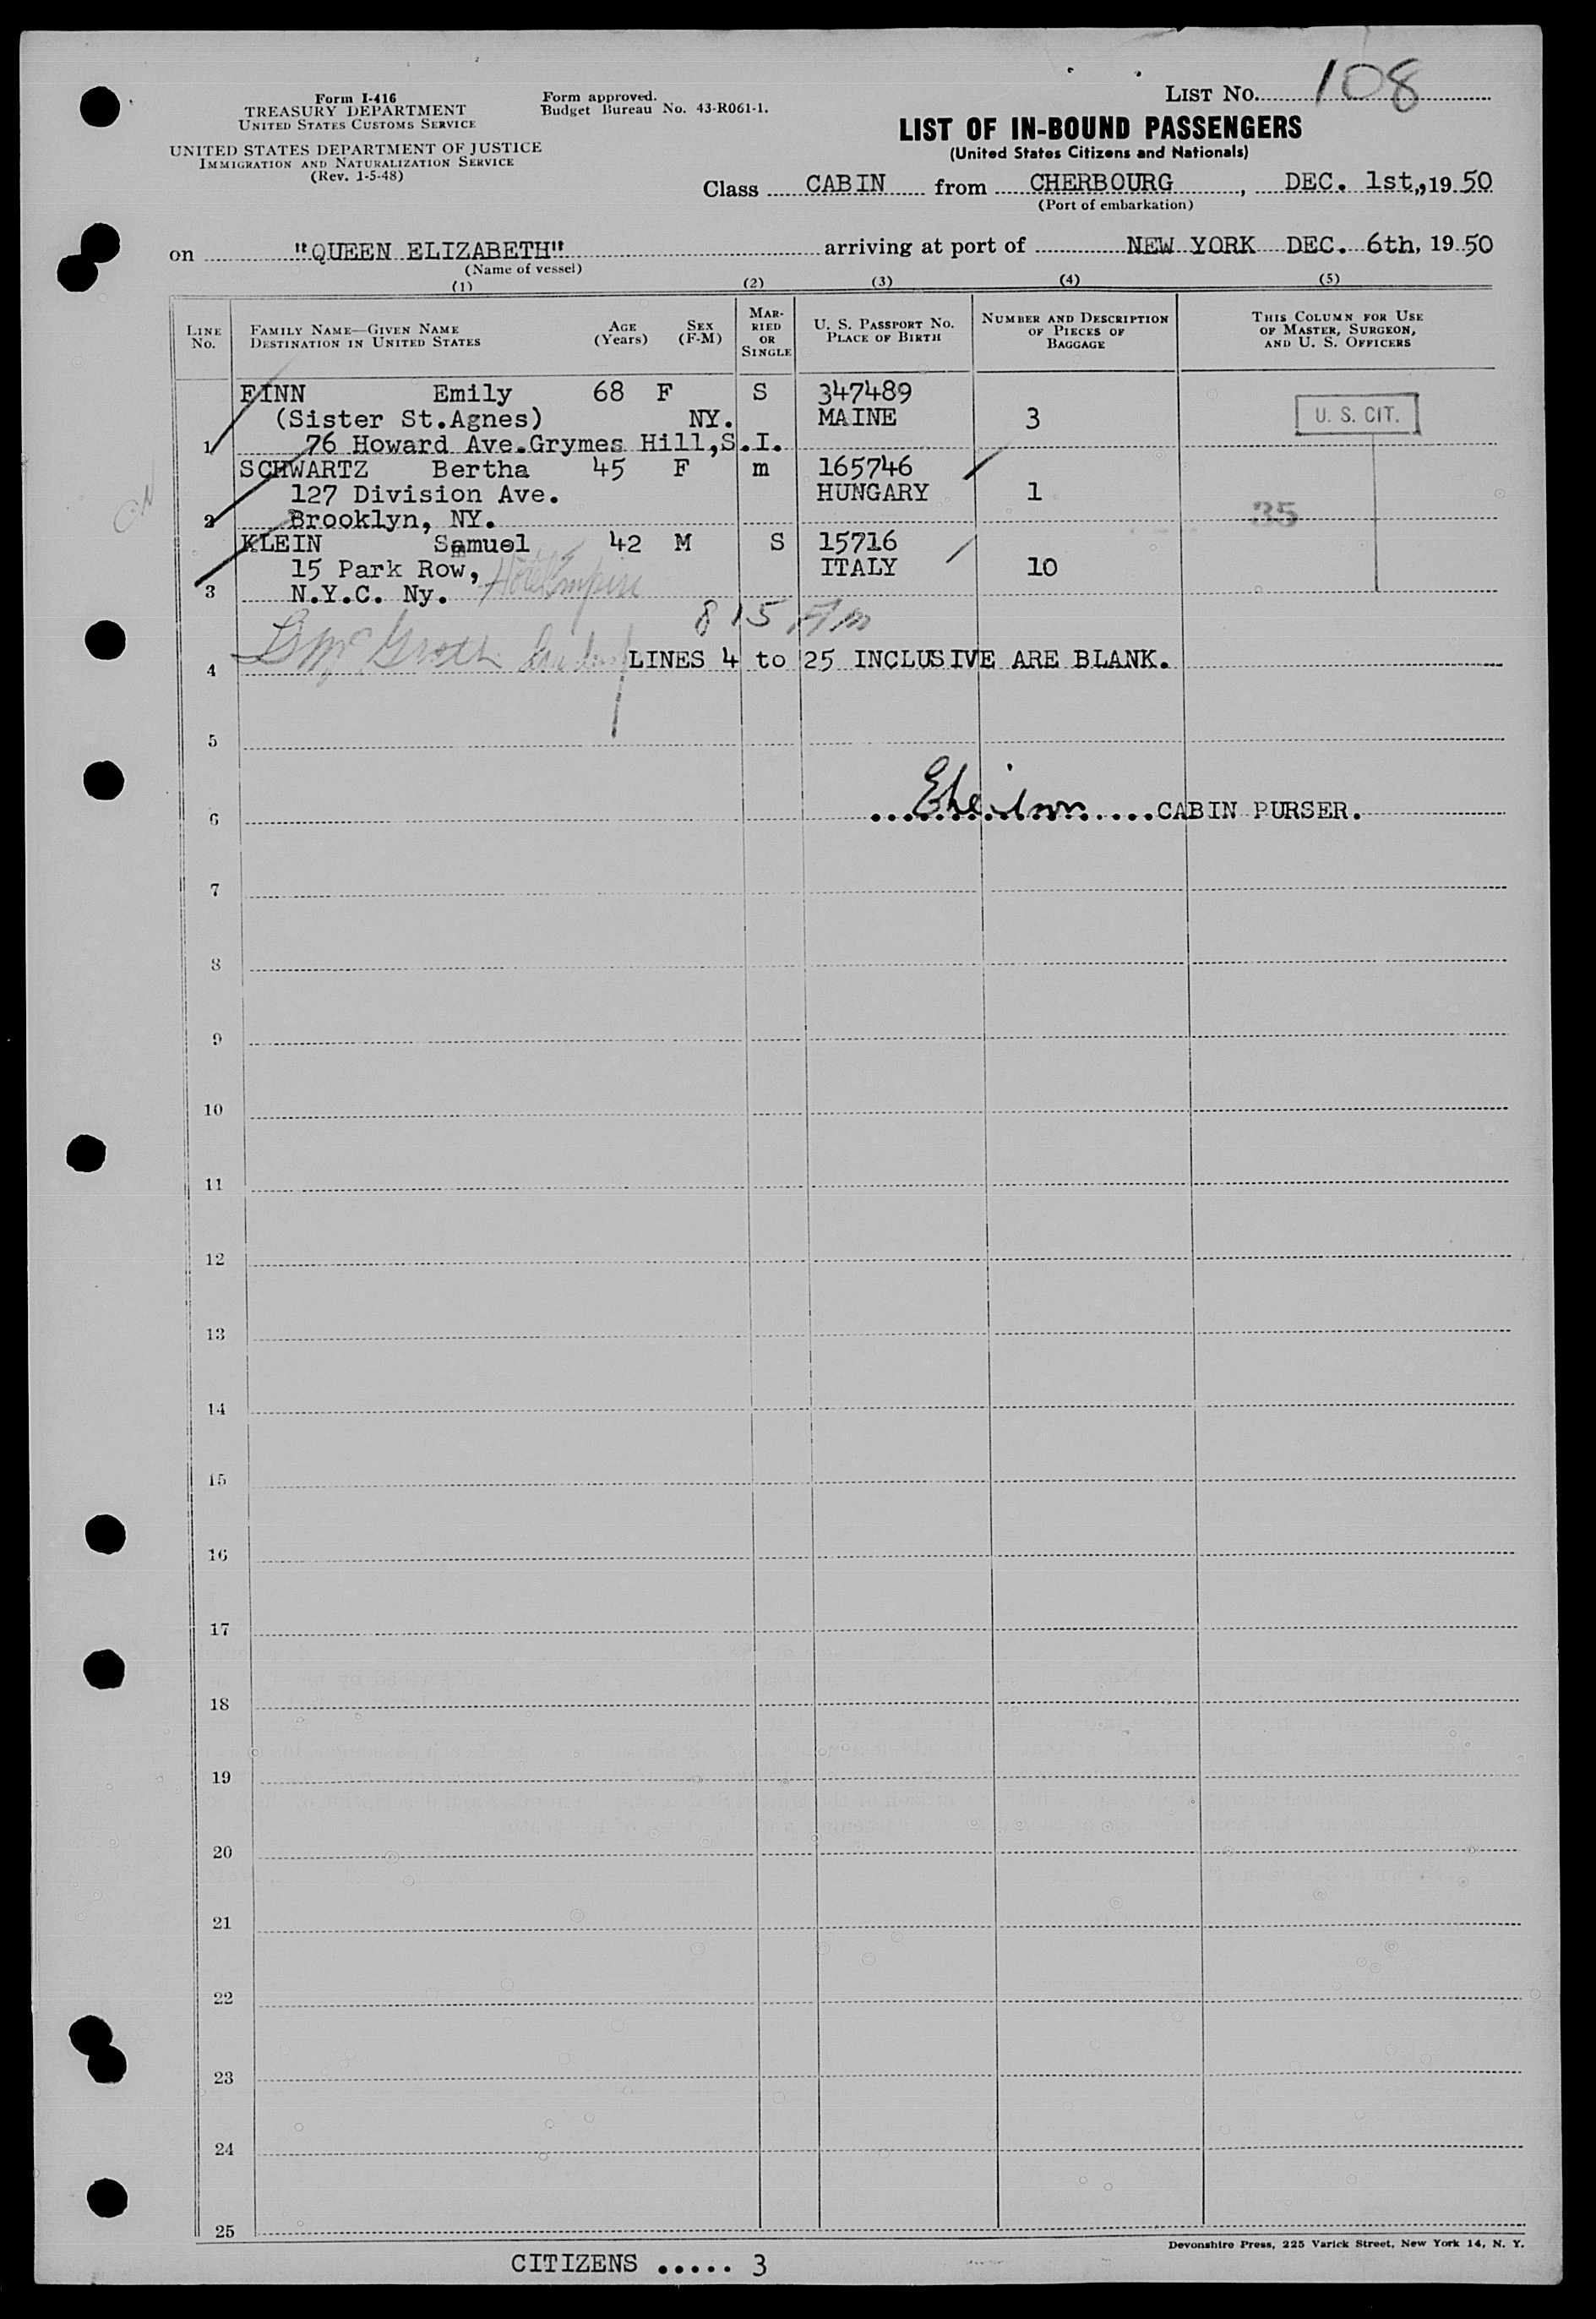 LIST No. 108
Form I-416
TREASURY DEPARTMENT
UNITED STATES CUSTOMS SERVICE
UNITED STATES DEPARTMENT OF JUSTICE
IMMIGRATION AND NATURALIZATION SERVICE
(Rev. 1-5-48)
Form approved.
Budget Bureau No. 43-R061-1.
LIST OF IN-BOUND PASSENGERS
(United States Citizens and Nationals)
Class CABIN from CHERBOURG, DEC. 1st, 19 50
(Port of embarkation)
on "QUEEN ELIZABETH" arriving at port of NEW YORK DEC. 6th, 19 50
(Name of vessel)
(1) (2) (3) (4) (5)
LINE No. FAMILY NAME—GIVEN NAME DESTINATION IN UNITED STATES AGE (Years) SEX (F-M) MARRIED OR SINGLE U. S. PASSPORT NO. PLACE OF BIRTH NUMBER AND DESCRIPTION OF PIECES OF BAGGAGE THIS COLUMN FOR USE OF MASTER, SURGEON, AND U. S. OFFICERS
FINN Emily 68 F S 347489
(Sister St.Agnes) NY. MAINE 3 U. S. CIT.
1 76 Howard Ave.Grymes Hill,S.I.
SCHWARTZ Bertha 45 F m 165746
127 Division Ave. HUNGARY 1
2 Brooklyn, NY. 35
KLEIN Samuel 42 M S 15716
15 Park Row, ITALY 10
3 N.Y.C. Ny. Hotel Empire
8 15 PM
4 LINES 4 to 25 INCLUSIVE ARE BLANK.
5
6 CABIN PURSER.
7
8
9
10
11
12
13
14
15
16
17
18
19
20
21
22
23
24
25
Devonshire Press, 225 Varick Street, New York 14, N. Y.
CITIZENS ..... 3